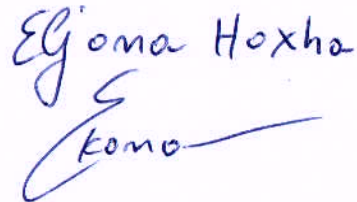 Eljona Hoxha
Ekono